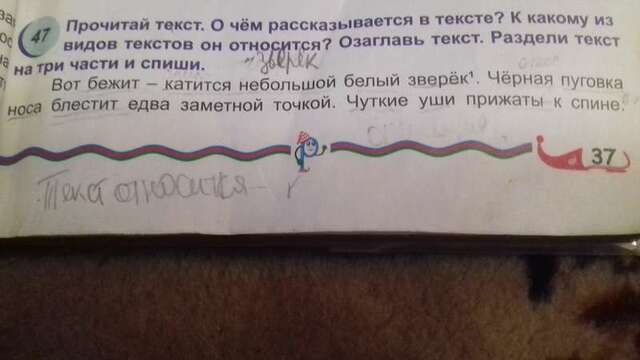 47
Прочитай текст. О чём рассказывается в тексте? К какому из
видов текстов он относится? Озаглавь текст. Раздели текст
на три части и спиши.
"Зверёк
Вот бежит – катится небольшой белый зверёк¹. Чёрная пуговка
носа блестит едва заметной точкой. Чуткие уши прижаты к спине.
37
Текст относится